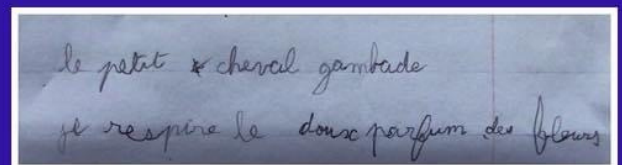 le petit cheval gambade
je respire le doux parfum des fleurs